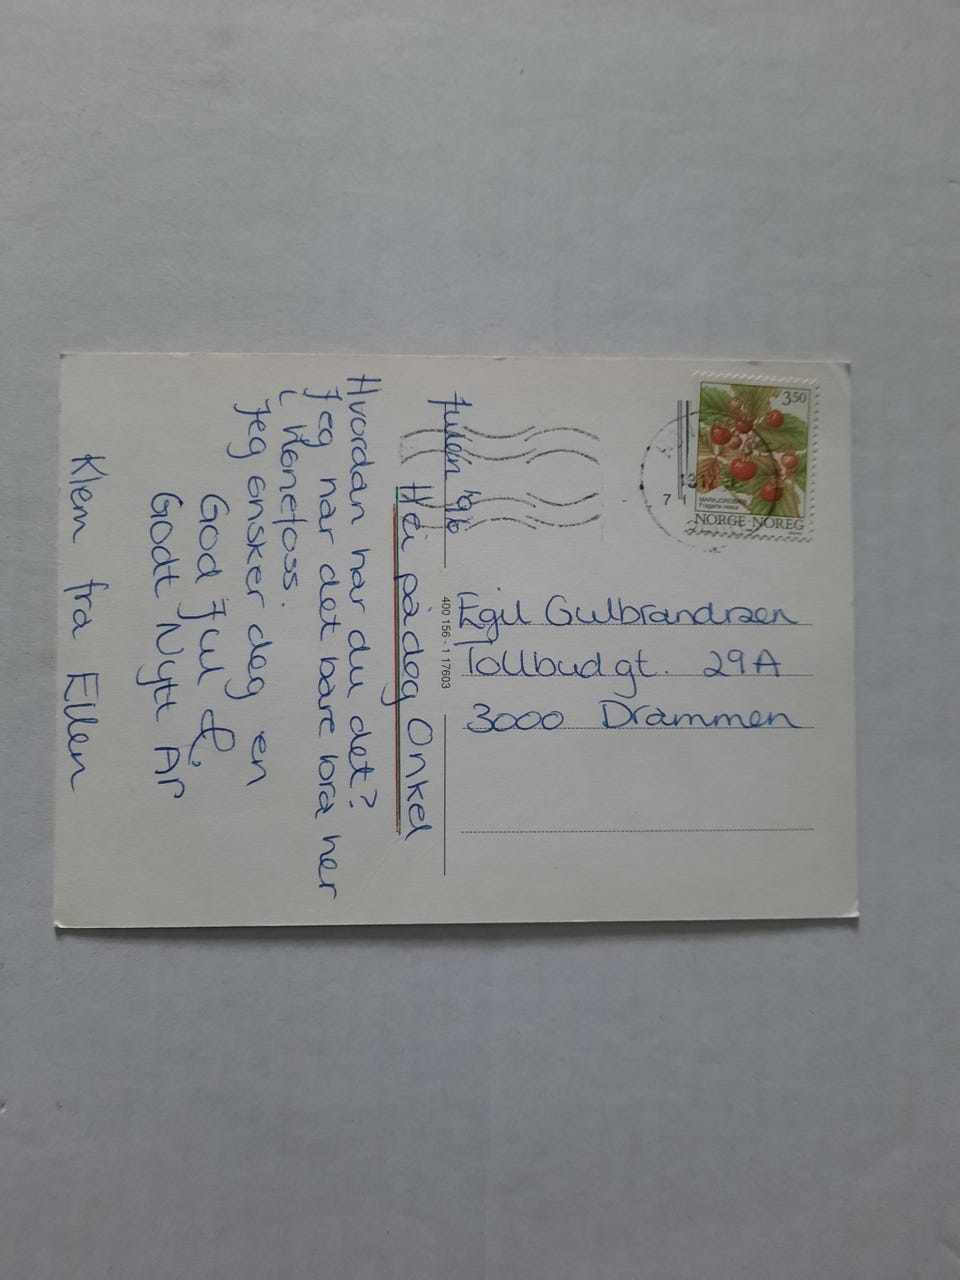 Julen 1996
Hei på deg Onkel
Hvordan har du det?
Jeg har det bare bra her
i Hønefoss.
Jeg ønsker deg en
God Jul &
Godt Nytt År
Klem fra Ellen
400 156 - 1 17603
350
MARKJORDBÆR
Fragaria vesca
NORGE·NOREG
Egil Gulbrandsen
Tollbudgt. 29A
3000 Drammen